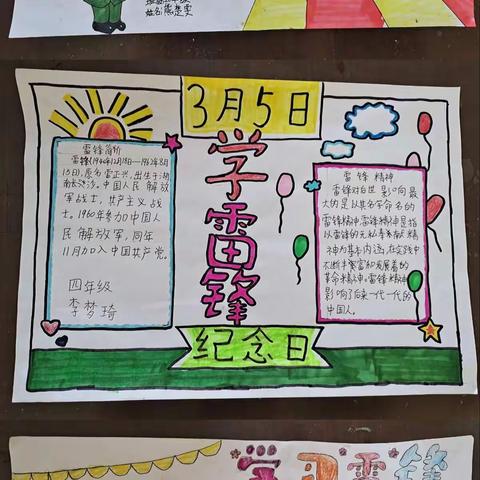 姓名:陈楚雯
3月5日
学雷锋
纪念日
雷锋简介
雷锋(1940年12月18日—1962年8月
15日),原名雷正兴,出生于湖
南长沙。中国人民解放
军战士,共产主义战
士。1960年参加中国人
民解放军,同年
11月加入中国共产党。
四年级
李梦琦
雷锋精神
雷锋对后世影响最
大的是以其名字命名的
雷锋精神,雷锋精神是指
以雷锋的无私奉献精
神为基本内涵,在实践中
不断丰富和发展着的
革命精神。雷锋精神
影响了后来一代一代的
中国人。
学习雷锋